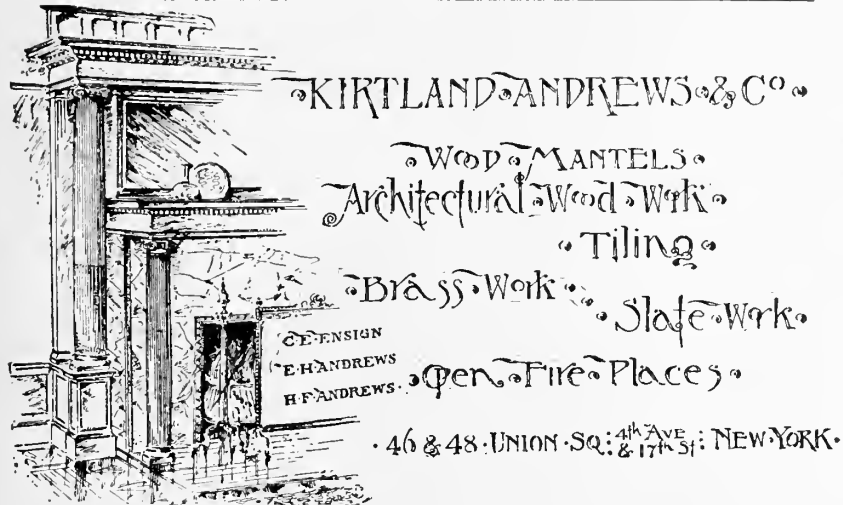 KIRTLAND ANDREWS & Co
WOOD MANTELS
Architectural Wood Work
Tiling
Brass Work
Slate Work
C.E. ENSIGN
E.H. ANDREWS
H.F. ANDREWS
Open Fire Places
46 & 48 UNION SQ: 4th AVE & 17th St: NEW YORK